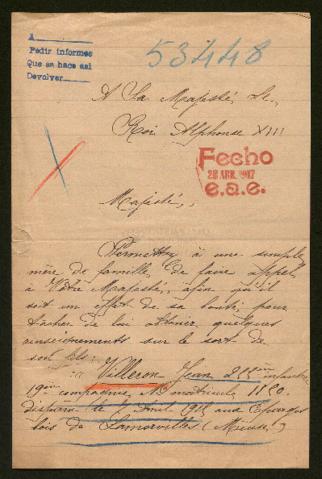 A
Pedir informes
Que se hace así
Devolver
53448
A Sa Majesté Le
Roi Alphonse XIII
Fecho
28 ABR. 1917
e.a.e.
Majesté,
Permettez à une simple
mère de famille de faire appel
à Votre Majesté, afin qu'il
soit un effet de sa bonté, pour
tâcher de lui obtenir quelques
renseignements sur le sort de
son fils:
Villeron Jean infanterie
19ème compagnie No matricule 1120
disparu le Avril 1915 aux Eparges
bois de Lamorville (Meuse)